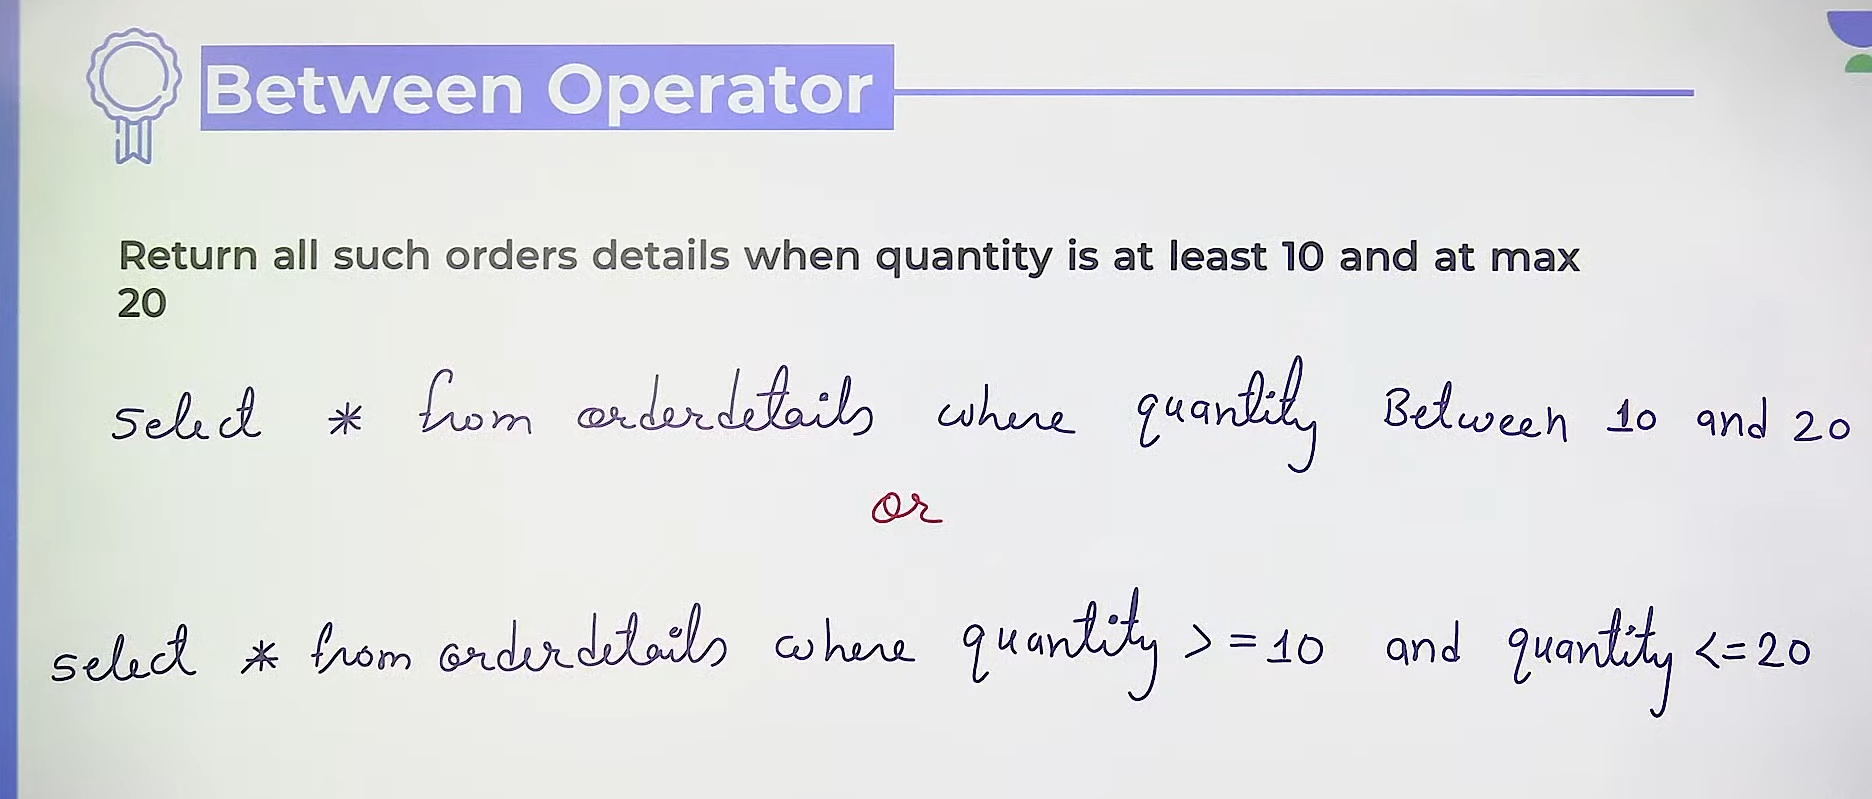 Between Operator
Return all such orders details when quantity is at least 10 and at max
20
select * from orderdetails where quantity Between 10 and 20
or
select * from orderdetails where quantity >= 10 and quantity <= 20